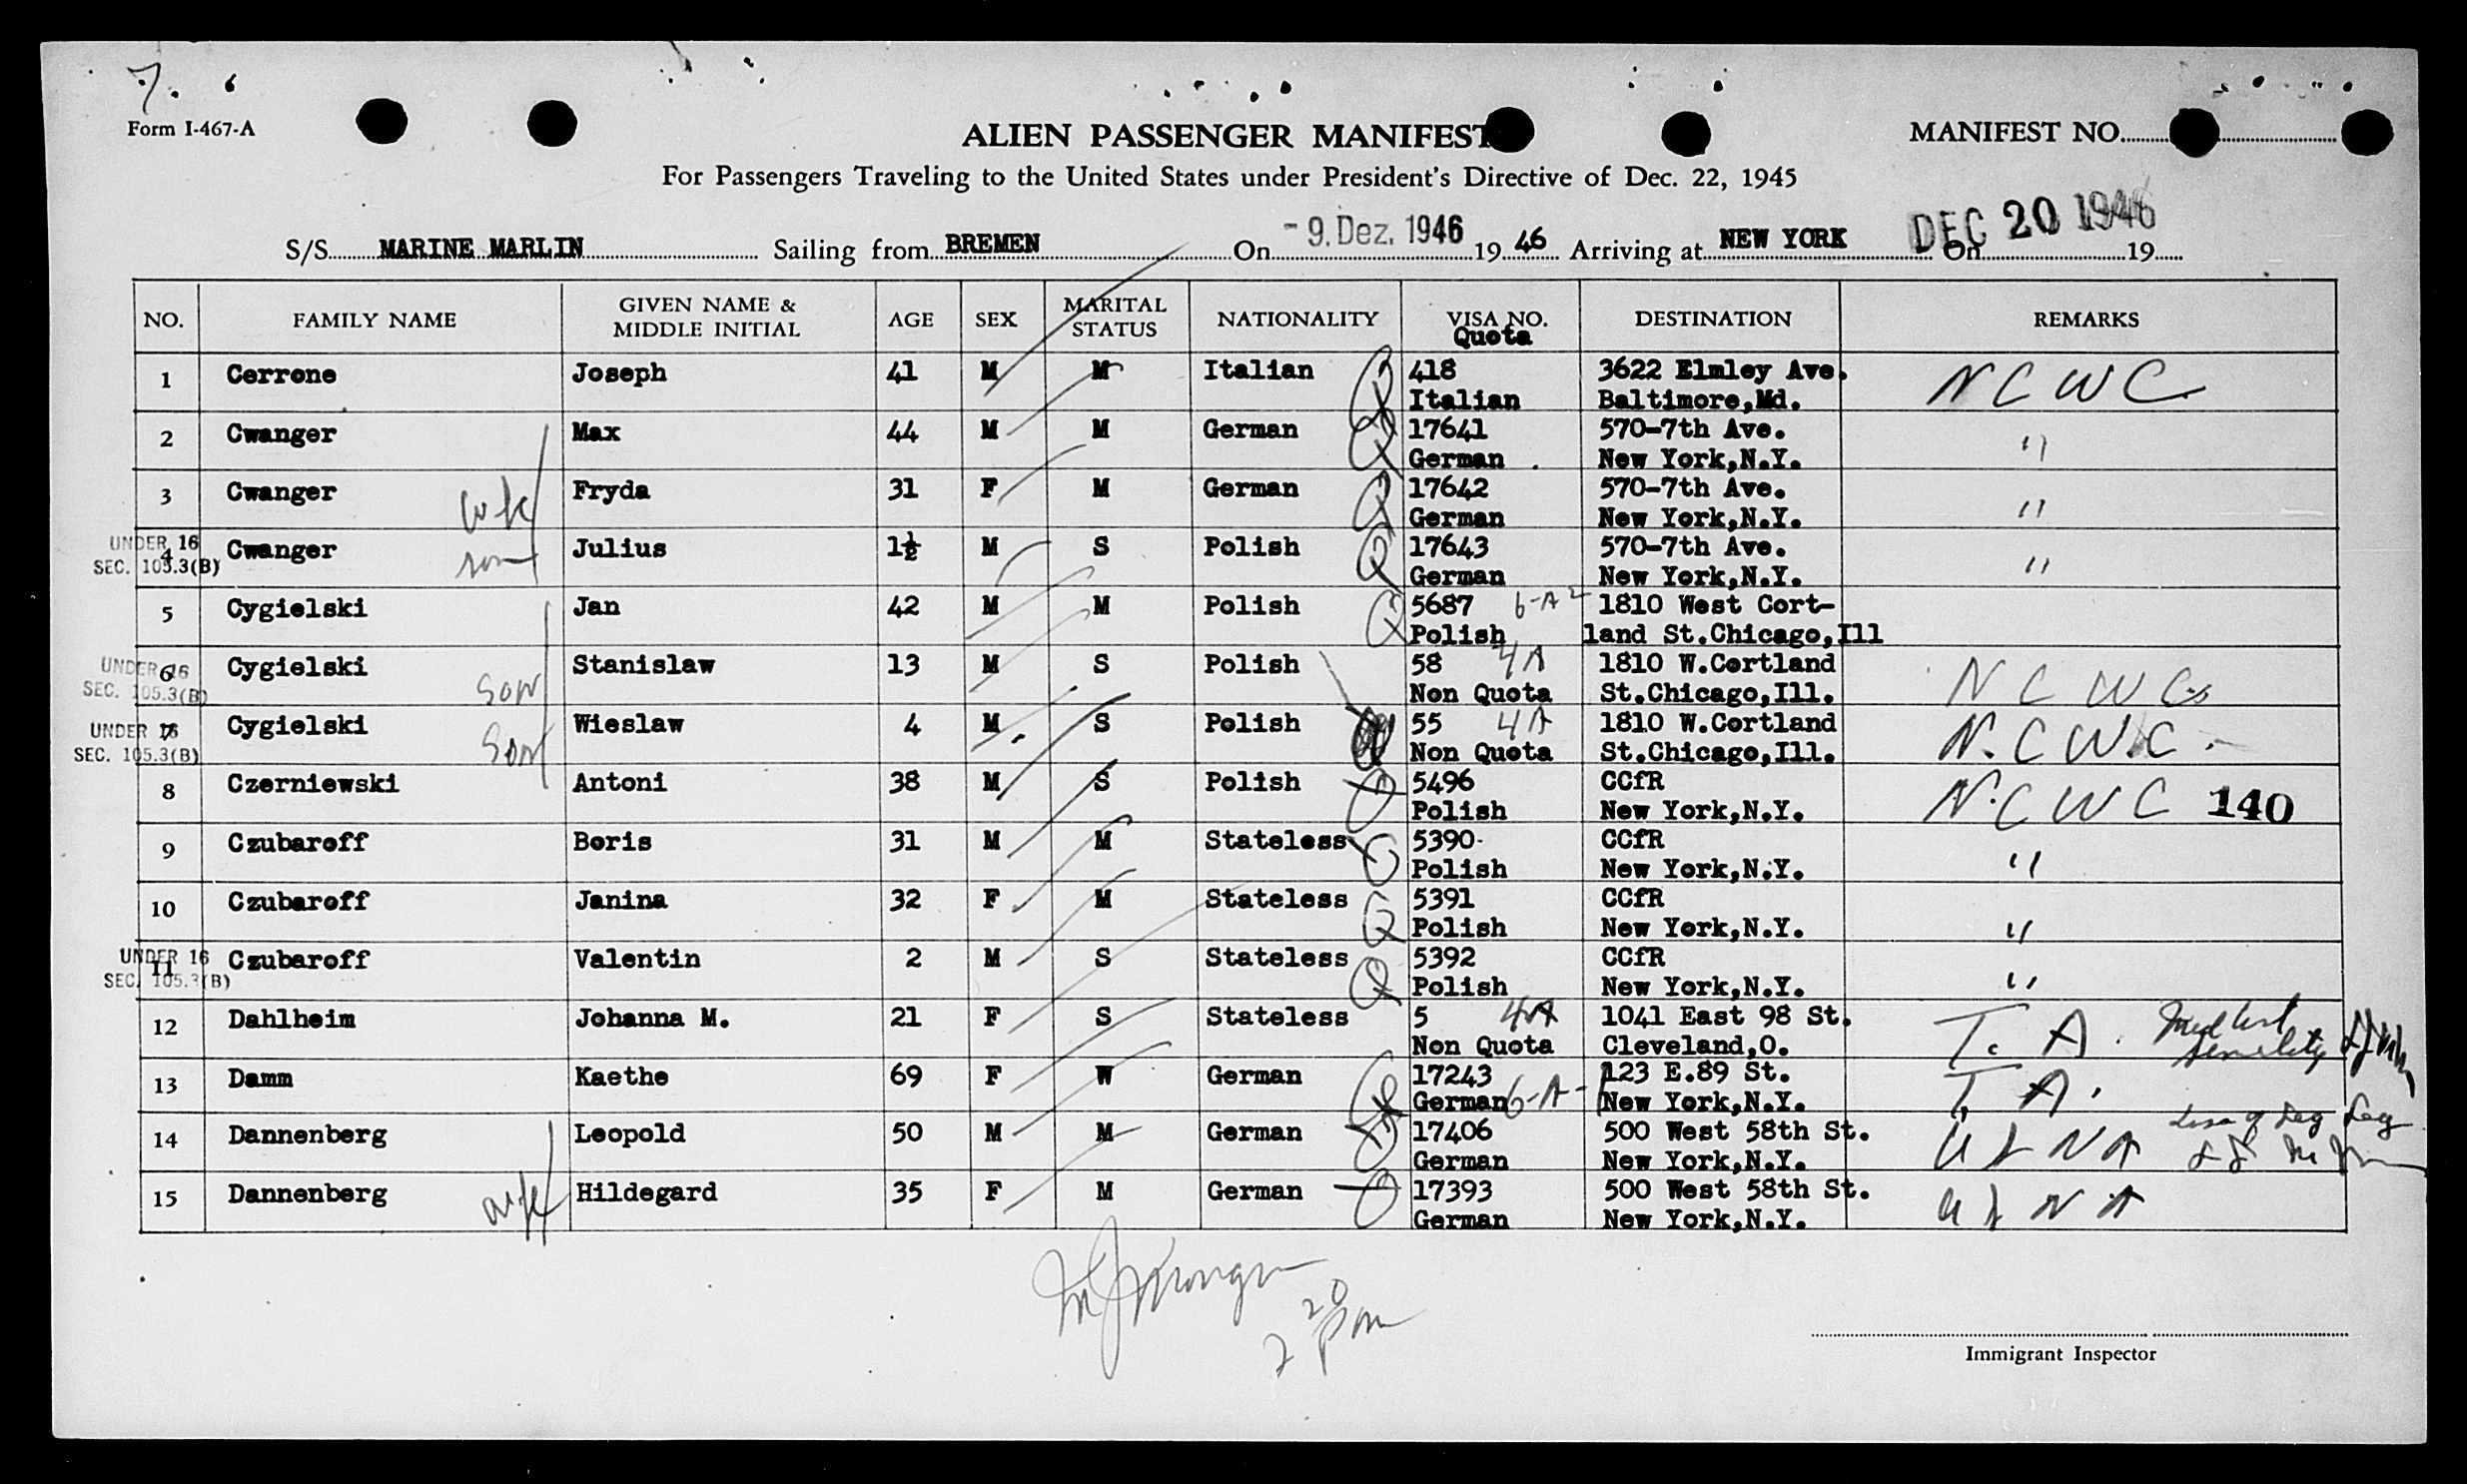 7. 6
Form I-467-A
ALIEN PASSENGER MANIFEST
MANIFEST NO.
For Passengers Traveling to the United States under President's Directive of Dec. 22, 1945
S/S MARINE MARLIN Sailing from BREMEN On - 9. Dez. 1946 19 46 Arriving at NEW YORK On DEC 20 1946 19
NO. FAMILY NAME GIVEN NAME & MIDDLE INITIAL AGE SEX MARITAL STATUS NATIONALITY VISA NO. Quota DESTINATION REMARKS
1 Cerrone Joseph 41 M M Italian Q 418 3622 Elmley Ave. N C W C
Italian Baltimore,Md.
2 Cwanger Max 44 M M German Q 17641 570-7th Ave. "
German New York,N.Y.
3 Cwanger wife Fryda 31 F M German Q 17642 570-7th Ave. "
German New York,N.Y.
UNDER 16
SEC. 105.3(B)
4 Cwanger son Julius 1½ M S Polish Q 17643 570-7th Ave. "
German New York,N.Y.
5 Cygielski Jan 42 M M Polish Q 5687 6-A2 1810 West Cort-
Polish land St.Chicago,Ill
UNDER 16
SEC. 105.3(B)
6 Cygielski son Stanislaw 13 M S Polish 58 4A 1810 W.Cortland N C W C
Non Quota St.Chicago,Ill.
UNDER 16
SEC. 105.3(B)
7 Cygielski son Wieslaw 4 M S Polish 55 4A 1810 W.Cortland N.C.W.C.
Non Quota St.Chicago,Ill.
8 Czerniewski Antoni 38 M S Polish Q 5496 CCfR N.C W C 140
Polish New York,N.Y.
9 Czubaroff Boris 31 M M Stateless Q 5390 CCfR "
Polish New York,N.Y.
10 Czubaroff Janina 32 F M Stateless Q 5391 CCfR "
Polish New York,N.Y.
UNDER 16
SEC. 105.3(B)
11 Czubaroff Valentin 2 M S Stateless Q 5392 CCfR "
Polish New York,N.Y.
12 Dahlheim Johanna M. 21 F S Stateless 5 4A 1041 East 98 St. T. A. Med Cert
Non Quota Cleveland,O. senility
13 Damm Kaethe 69 F W German Q 17243 123 E.89 St. T. A.
German 6-A-1 New York,N.Y.
14 Dannenberg Leopold 50 M M German Q 17406 500 West 58th St. Loss of Leg
German New York,N.Y.
15 Dannenberg wife Hildegard 35 F M German Q 17393 500 West 58th St.
German New York,N.Y.
20
2 pm
Immigrant Inspector